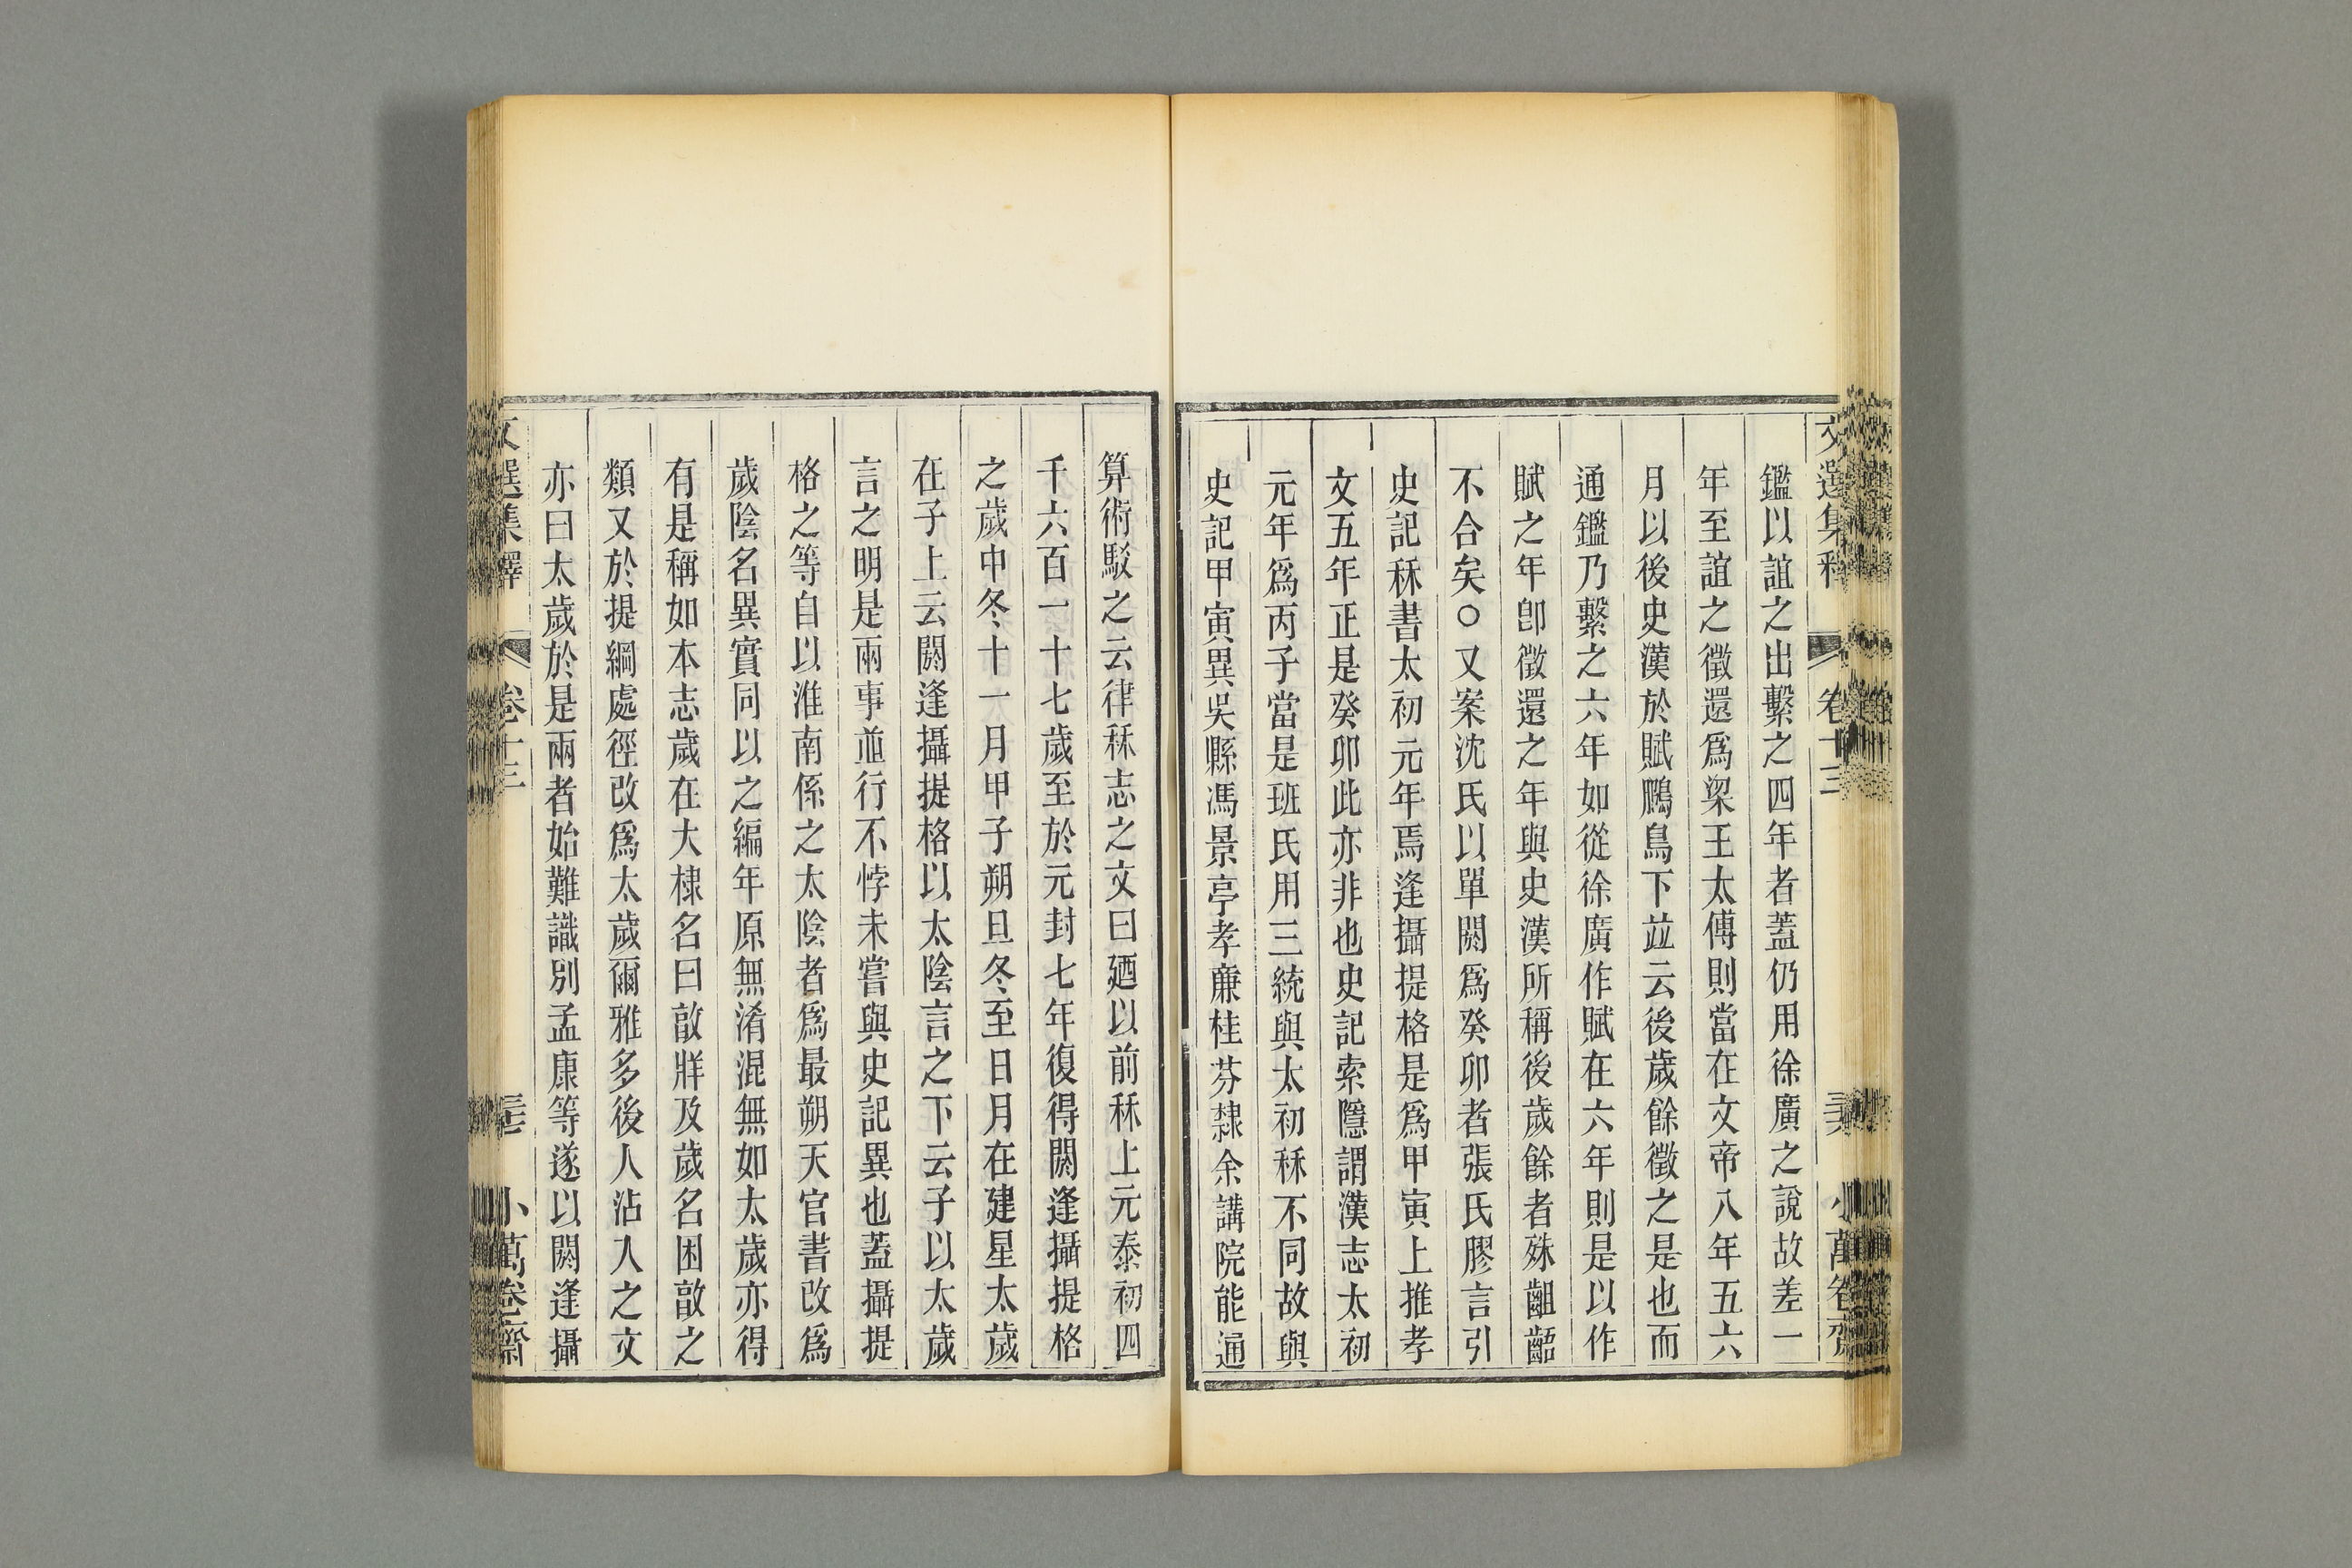 文選集釋 卷十三 三六 小萬卷齋
鑑以誼之出繫之四年者蓋仍用徐廣之說故差一
年至誼之徵還爲梁王太傅則當在文帝八年五六
月以後史漢於賦鵩鳥下竝云後歲餘徵之是也而
通鑑乃繫之六年如從徐廣作賦在六年則是以作
賦之年卽徵還之年與史漢所稱後歲餘者殊齟齬
不合矣○又案沈氏以單閼爲癸卯者張氏膠言引
史記秝書太初元年焉逢攝提格是爲甲寅上推孝
文五年正是癸卯此亦非也史記索隱謂漢志太初
元年爲丙子當是班氏用三統與太初秝不同故與
史記甲寅異吳縣馮景亭孝廉桂芬隸余講院能通
算術駁之云律秝志之文曰廼以前秝上元泰初四
千六百一十七歲至於元封七年復得閼逢攝提格
之歲中冬十一月甲子朔旦冬至日月在建星太歲
在子上云閼逢攝提格以太陰言之下云子以太歲
言之明是兩事竝行不悖未嘗與史記異也蓋攝提
格之等自以淮南係之太陰者爲最朔天官書改爲
歲陰名異實同以之編年原無淆混無如太歲亦得
有是稱如本志歲在大棣名曰敦牂及歲名困敦之
類又於提綱處徑改爲太歲爾雅多後人沾入之文
亦曰太歲於是兩者始難識別孟康等遂以閼逢攝
文選集釋 卷十三 三七 小萬卷齋